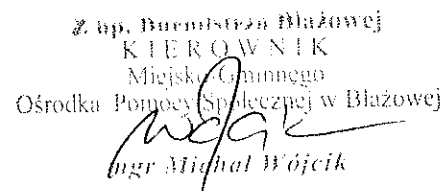 Z up. Burmistrza Błażowej
KIEROWNIK
Miejsko-Gminnego
Ośrodka Pomocy Społecznej w Błażowej
mgr Michał Wójcik